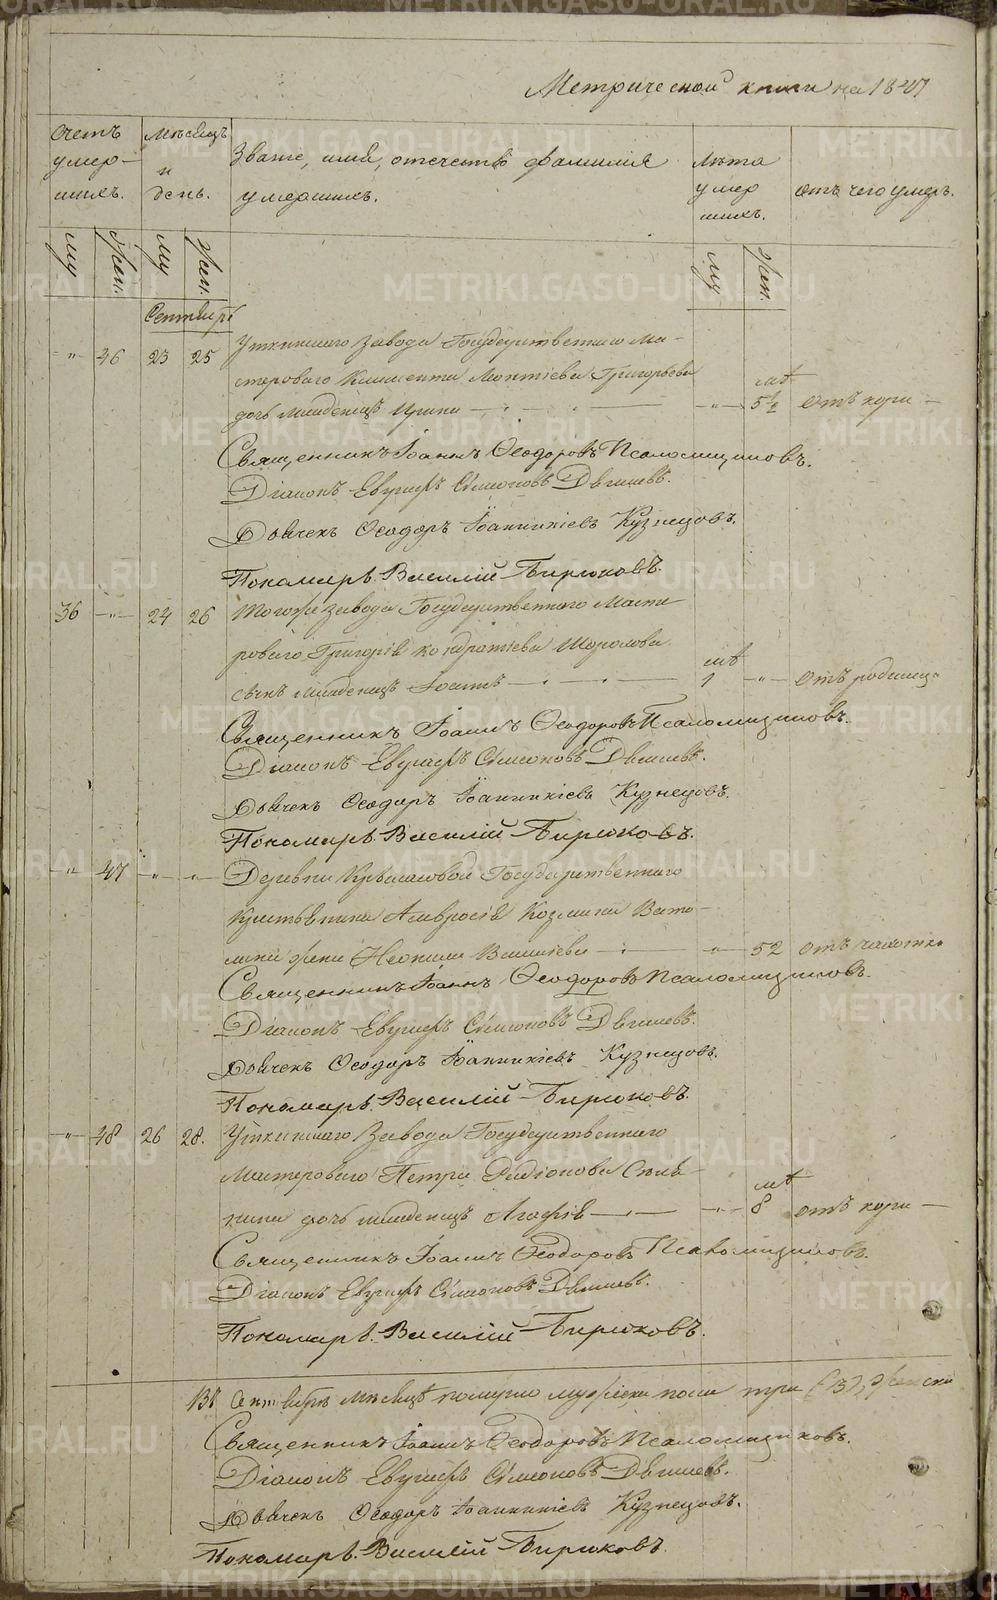 Метрической книги на 1847
Счетъ умер-шихъ.
Мѣсяцъ и день.
Званіе, имя, отчество фамилія умершихъ.
Лѣта умер шихъ.
отъ чего умеръ.
Му Жен. Му Жен. Му Жен.
Сентябрь
" 46 23 25 Уткинскаго Завода Государственнаго Ма-
стероваго Климента Леонтіева Григорьева
лѣ
дочь младенецъ Ирина " 5½ отъ кори
Священникъ Іоаннъ Ѳеодоровъ Псаломщиковъ.
Діаконъ Евграфъ Сѵмеоновъ
Дьячекъ Ѳеодоръ Іоанникіевъ Кузнецовъ.
Пономарь Василій Бирюковъ.
36 " 24 26 Тогоже завода Государственнаго Масте
роваго Григорія Кондратіева
лѣ
сынъ младенецъ Іоаннъ 1 " отъ родимца
Священникъ Іоаннъ Ѳеодоровъ Псаломщиковъ.
Діаконъ Евграфъ Сѵмеоновъ
Дьячекъ Ѳеодоръ Іоанникіевъ Кузнецовъ.
Пономарь Василій Бирюковъ.
" 47 " " Деревни Крылосовой Государственнаго
Крестьянина Амвросія Козмина
жена Неонила " 52 отъ чахотки
Священникъ Іоаннъ Ѳеодоровъ Псаломщиковъ.
Діаконъ Евграфъ Сѵмеоновъ
Дьячекъ Ѳеодоръ Іоанникіевъ Кузнецовъ.
Пономарь Василій Бирюковъ.
" 48 26 28. Уткинскаго Завода Государственнаго
Мастероваго Петра Родіонова
лѣ
дочь младенецъ Агафія " 8 отъ кори
Священникъ Іоаннъ Ѳеодоровъ Псаломщиковъ.
Діаконъ Евграфъ Сѵмеоновъ
Пономарь Василій Бирюковъ.
Въ Сентябрѣ мѣсяцѣ померло мужеска пола три (3), женска
Священникъ Іоаннъ Ѳеодоровъ Псаломщиковъ.
Діаконъ Евграфъ Сѵмеоновъ
Дьячекъ Ѳеодоръ Іоанникіевъ Кузнецовъ.
Пономарь Василій Бирюковъ
METRIKI.GASO-URAL.RU